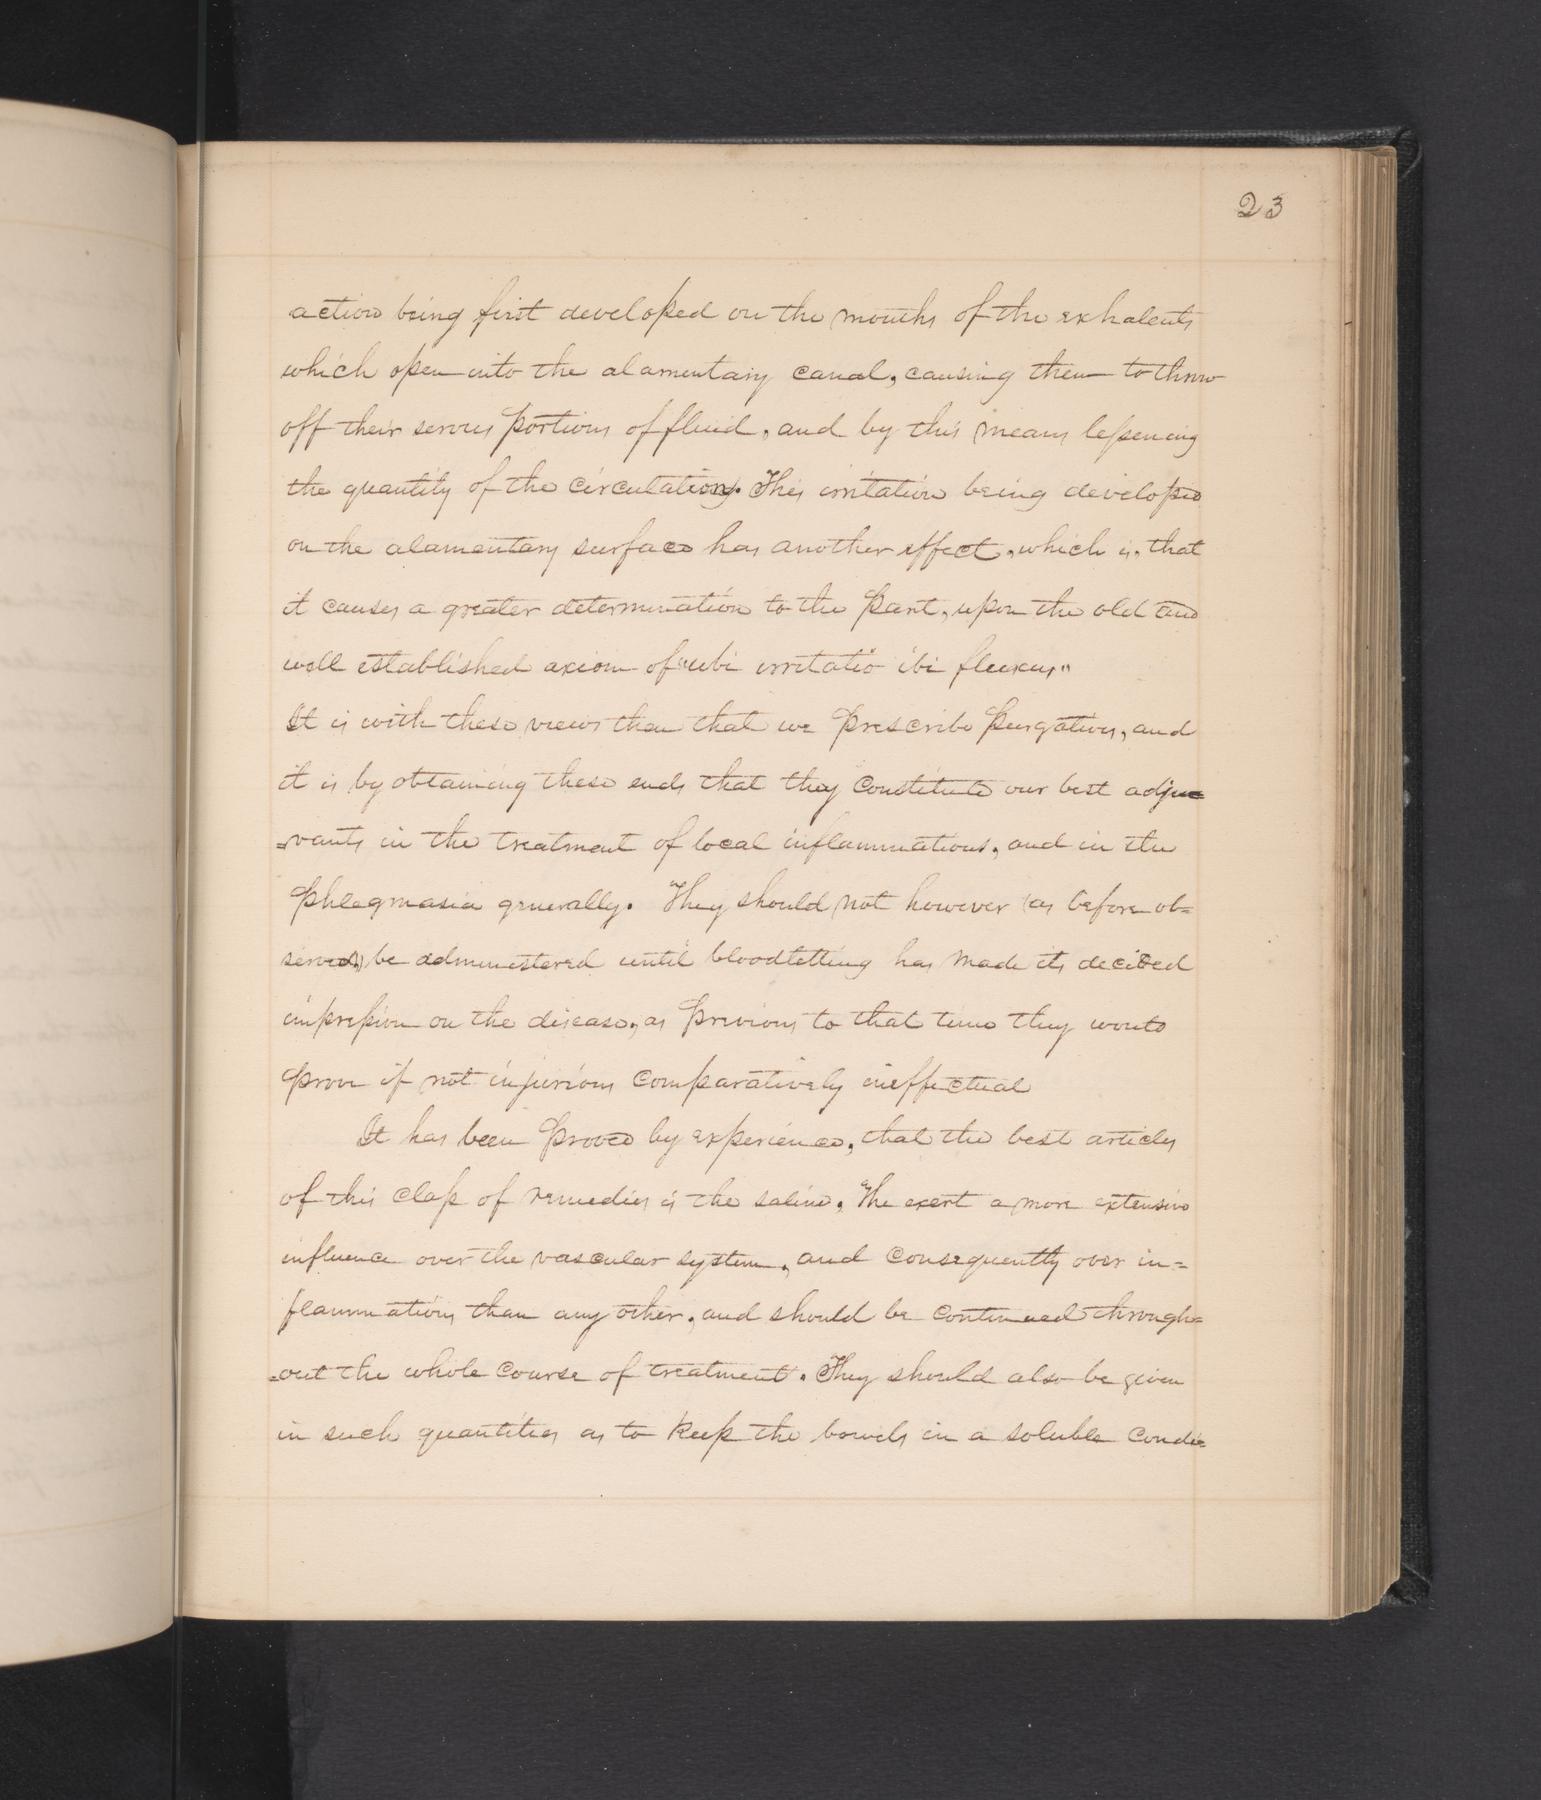 23
action being first developed on the mouths of the exhalents
which open into the alamentary canal, causing them to throw
off their serous portions of fluid, and by this means lessening
the quantity of the circulation. This irritation being developed
on the alamentary surface has another effect, which is, that
it causes a greater determination to the part, upon the old and
well established axiom of "ubi irritatio ibi fluxus"
It is with these views then that we prescribe purgatives, and
it is by obtaining these ends that they constitute our best adju=
=vants in the treatment of local inflammations, and in the
phlegmasia generally. They should not however (as before ob=
served,) be administered until bloodletting has made its decided
impression on the disease, as previous to that time they would
prove if not injurious comparatively ineffectual
It has been proved by experience, that the best articles
of this class of remedies is the saline. The exert a more extensive
influence over the vascular system, and consequently over in=
flammations than any other, and should be continued through=
=out the whole course of treatment. They should also be given
in such quantities as to keep the bowels in a soluble condi=